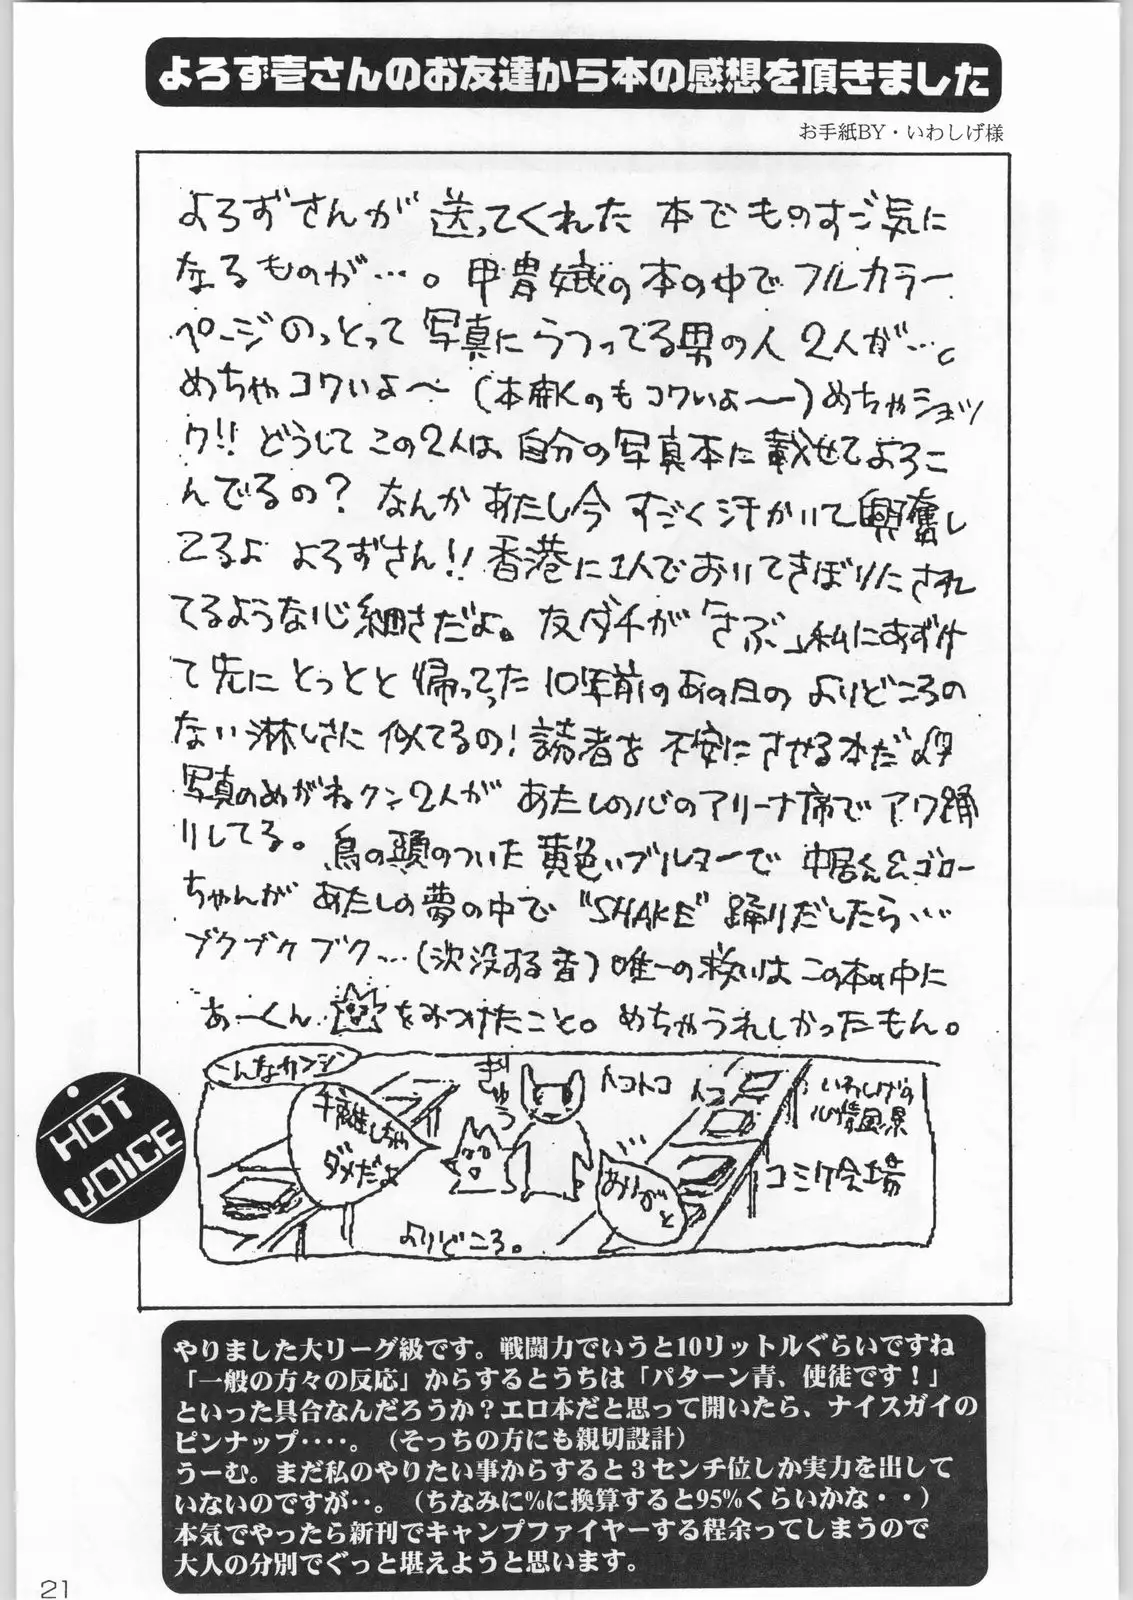 よろず壱さんのお友達から本の感想を頂きました
お手紙BY・いわしげ様
よろずさんが 送ってくれた 本でものすご気に
なるものが…。甲冑娘の本の中でフルカラー
ページのっとって写真にうつってる男の人 2人が…。
めちゃコワいよ〜 (本開くのもコワいよ〜)めちゃショッ
ク!! どうしてこの2人は自分の写真本に載せてよろこ
んでるの? なんかあたし今 すごく汗かいて興奮し
てるよ よろずさん!! 香港に1人でおいてきぼりにされ
てるような心細さだよ。友ダチが「さぶ」私にあずけ
て先にとっとと帰ってった10年前のあの日のよりどころの
ない淋しさに似てるの!読者を不安にさせる本だよ
写真のめがねクン2人が あたしの心のアリーナ席でアワ踊
りしてる。鳥の頭のついた黄色いブルマーで 中居くんとゴロー
ちゃんが あたしの夢の中で "SHAKE" 踊りだしたら…
ブクブクブク…(沈没する音)唯一の救いは この本の中に
あーくん をみつけたこと。めちゃうれしかったもん。
こんなカンジ
手離しちゃ
ダメだよ
ぎゅう
トコトコ
トコ
ありがと
よりどころ。
いわしげの
心情風景
コミケ会場
HOT
VOICE
やりました大リーグ級です。戦闘力でいうと10リットルぐらいですね
「一般の方々の反応」からするとうちは「パターン青、使徒です！」
といった具合なんだろうか？エロ本だと思って開いたら、ナイスガイの
ピンナップ‥‥。（そっちの方にも親切設計）
うーむ。まだ私のやりたい事からすると３センチ位しか実力を出して
いないのですが‥。（ちなみに%に換算すると95%くらいかな・・）
本気でやったら新刊でキャンプファイヤーする程余ってしまうので
大人の分別でぐっと堪えようと思います。
21